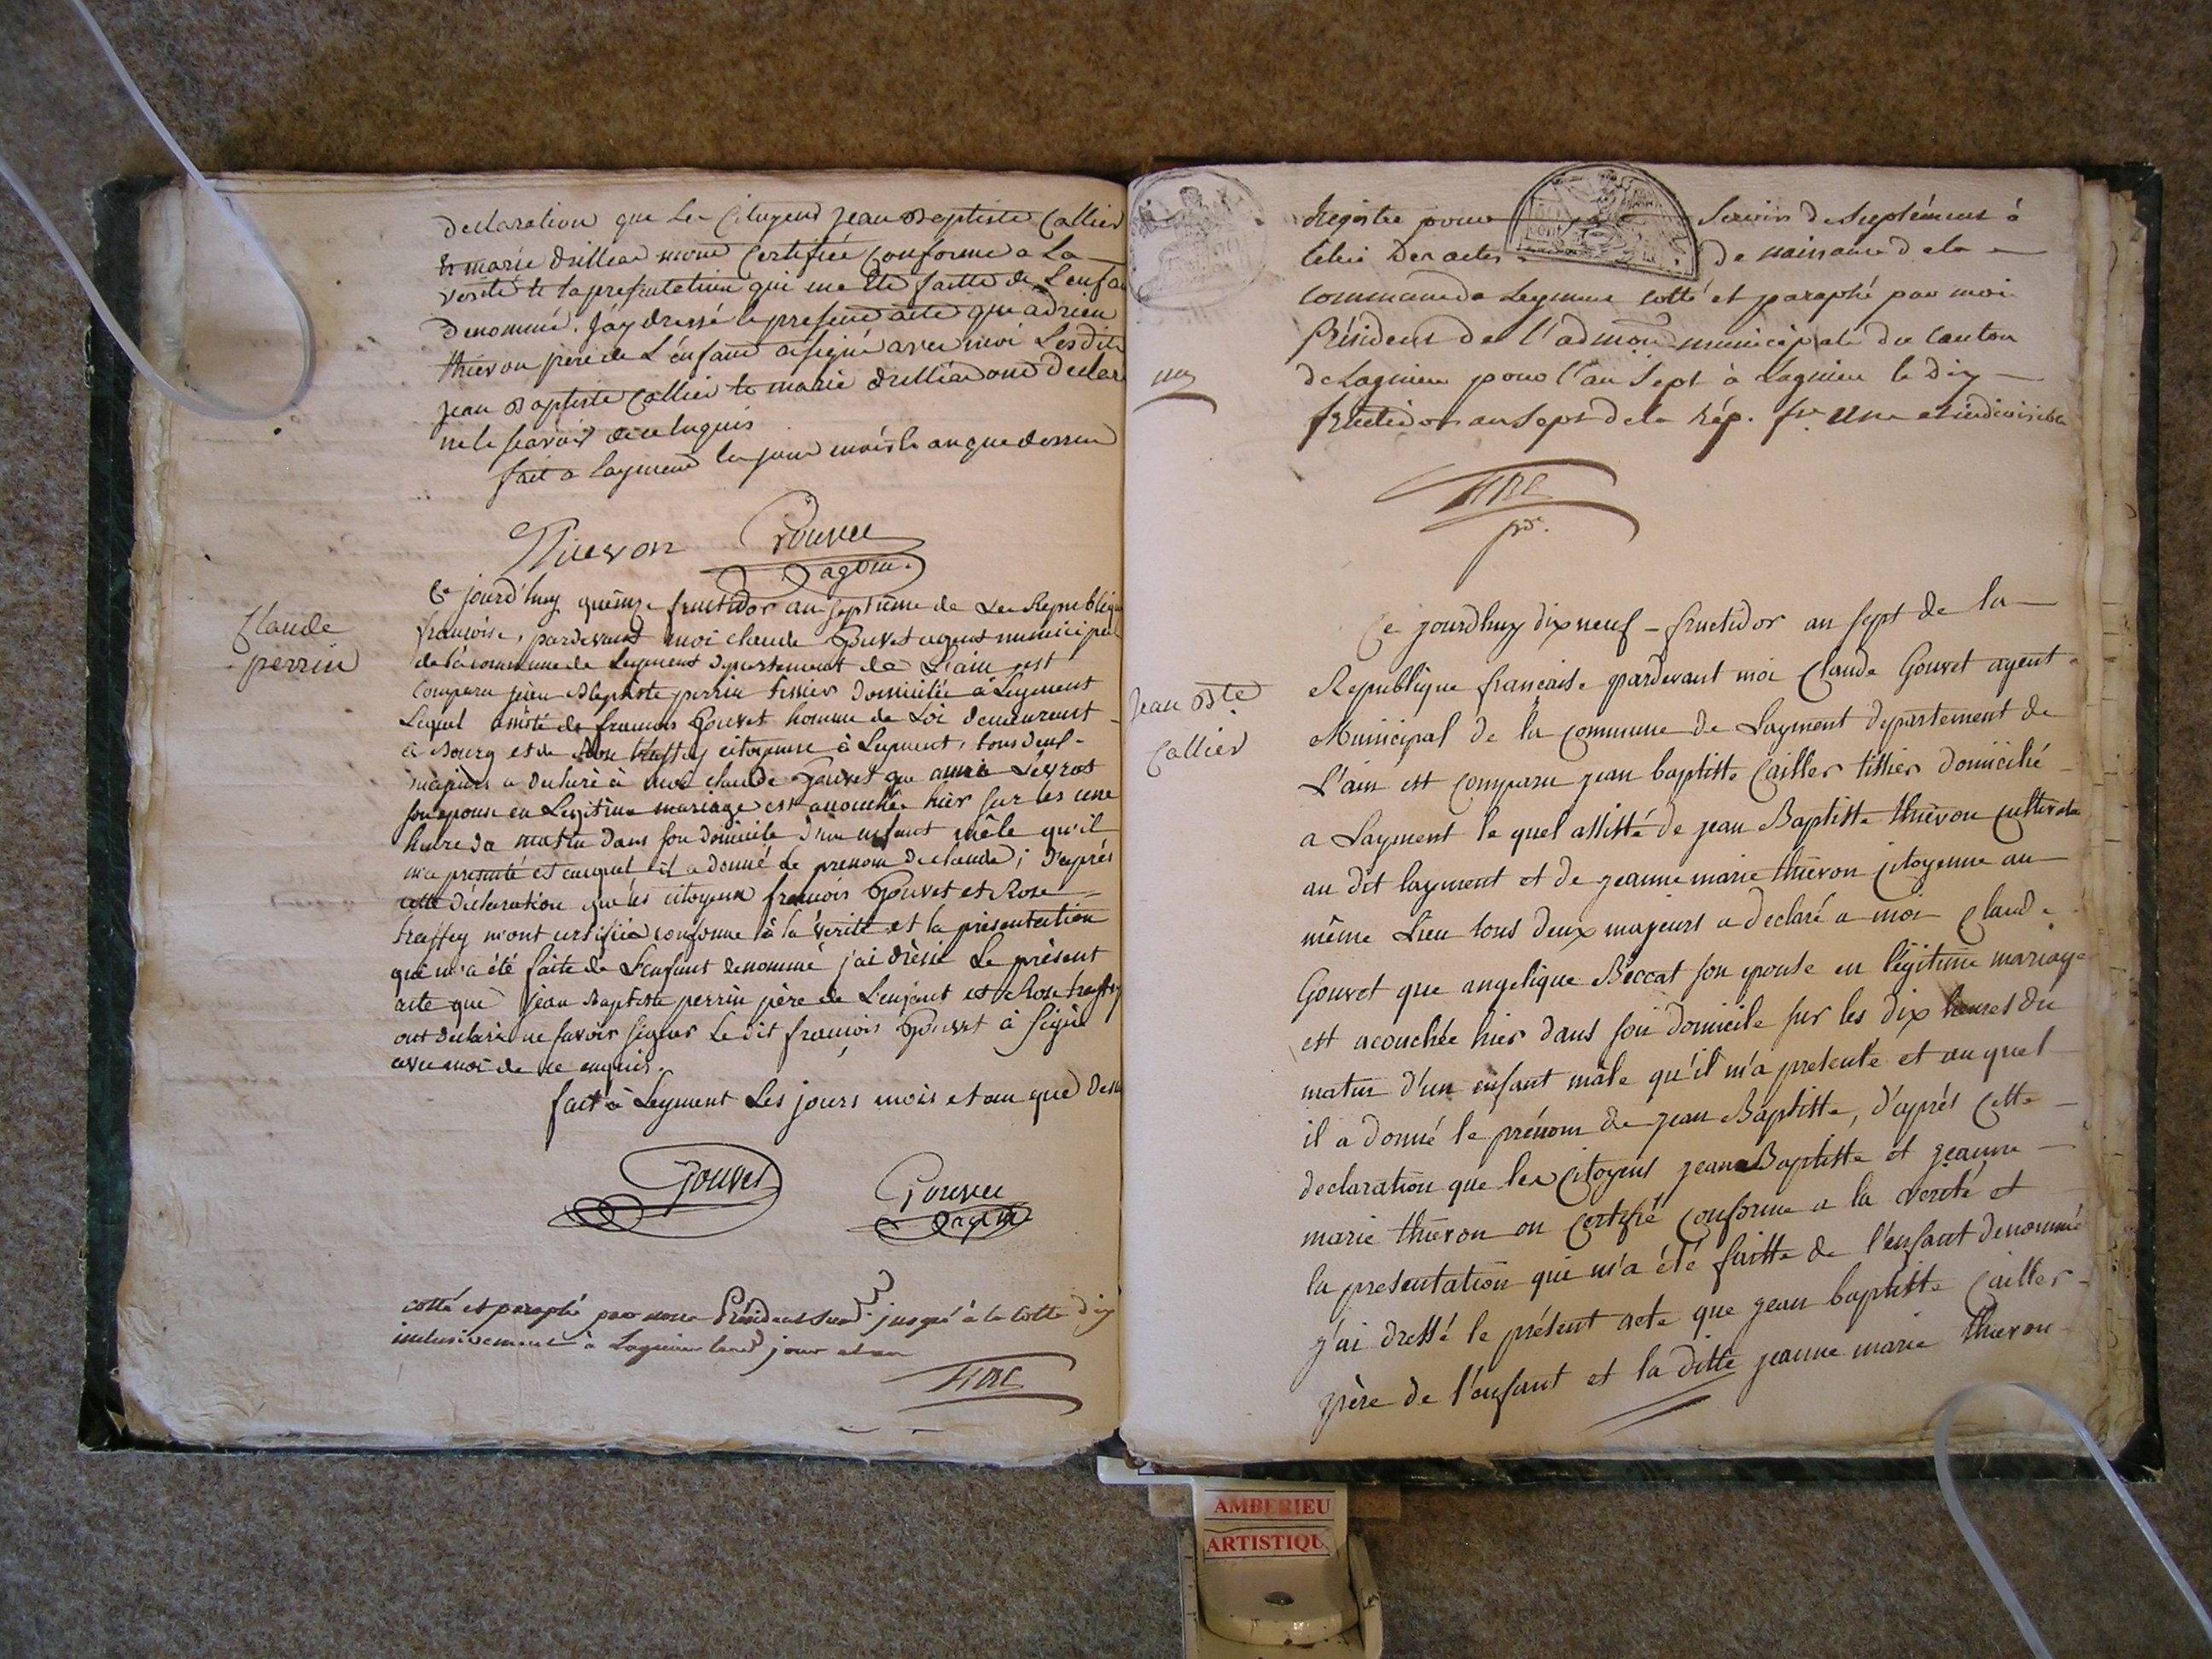 declaration que les Citoyens jean Baptiste Callier
et marie drillead mont Certifiée Conforme a La
verité et la presentation qui ma Eté faitte de L'enfa
denommé. J'ay dressé le present acte que adrien
thievon pere de L'enfant asigné avec moi Lesdits
jean Baptiste Callier et marie drilliad ont declar
ne le scavoir de ce enquis
fait a layment les jour mois et an que dessus
Thievon Gouvet
agent.
Claude
perrin
Ce jourd'huy quinze fructidor an septième de La Republique
francoise, pardevant moi claude Gouvet agent municipal
de la commune de Leyment département de L'ain est
comparu jean Baptiste perrin tissier domicilié à Leyment
Lequel assisté de francois Gouvet homme de Loi demeurant
à Bourg et de Rose treffey citoyenne à Leyment, tous deux
majeurs a declaré à moi claude Gouvet que Levrat
son epouse en Legitime mariage est accouchée hier sur les une
heure du matin dans son domicile d'un enfant mâle qu'il
m'a presenté et auquel il a donné le prenom de claude; d'après
cette déclaration que les citoyens francois Gouvet et Rose
treffey m'ont certifiée conforme à la verité et la présentation
qui m'a été faite de L'enfant denommé j'ai dressé Le présent
acte que jean Baptiste perrin père de L'enfant et Rose treffey
ont déclaré ne savoir signer Le dit francois Gouvet à signé
avec moi de ce enquis.
fait à Leyment Les jours mois et an que dessu
Gouvet Gouvet
agent
cotté et paraphé par nous Président jusqué à la Cotte dix
inclusivement à Lagnieu jour et an
pour Servir de Suplément à
Registre
celui des actes de naissance de la
commune de Leyment cotté et paraphé par moi
Président de l'admon municipale du Canton
de Lagnieu pour l'an Sept à Lagnieu le dix
fructidor an Sept de la Rép. fse Une et indivisible
pdt.
Ce jourdhuy dix neuf - fructidor an sept de la
Republique francaise pardevant moi Claude Gouvet agent
Jean Bte
Callier
Municipal de la commune de Layment departement de
L'ain est comparu jean baptiste Cailler tissier domicilié
a Layment le quel assisté de jean Baptiste thievon
au dit layment et de jeanne marie thievon Citoyenne au
même Lieu tous deux majeurs a declaré a moi Claude
Gouvet que angelique Beccat son epouse en légitime mariage
est acouchée hier dans son domicile sur les dix heures du
matin d'un enfant mâle qu'il m'a presenté et au quel
il a donné le prénom de jean Baptiste, d'après Cette
declaration que les Citoyens jean Baptiste et jeanne
marie thievon on Certifié Conforme a la verité et
la presentation qui m'a été faitte de l'enfant denommé
j'ai dressé le présent acte que jean baptiste Cailler
père de l'enfant et la ditte jeanne marie thievon
AMBERIEU
ARTISTIQU